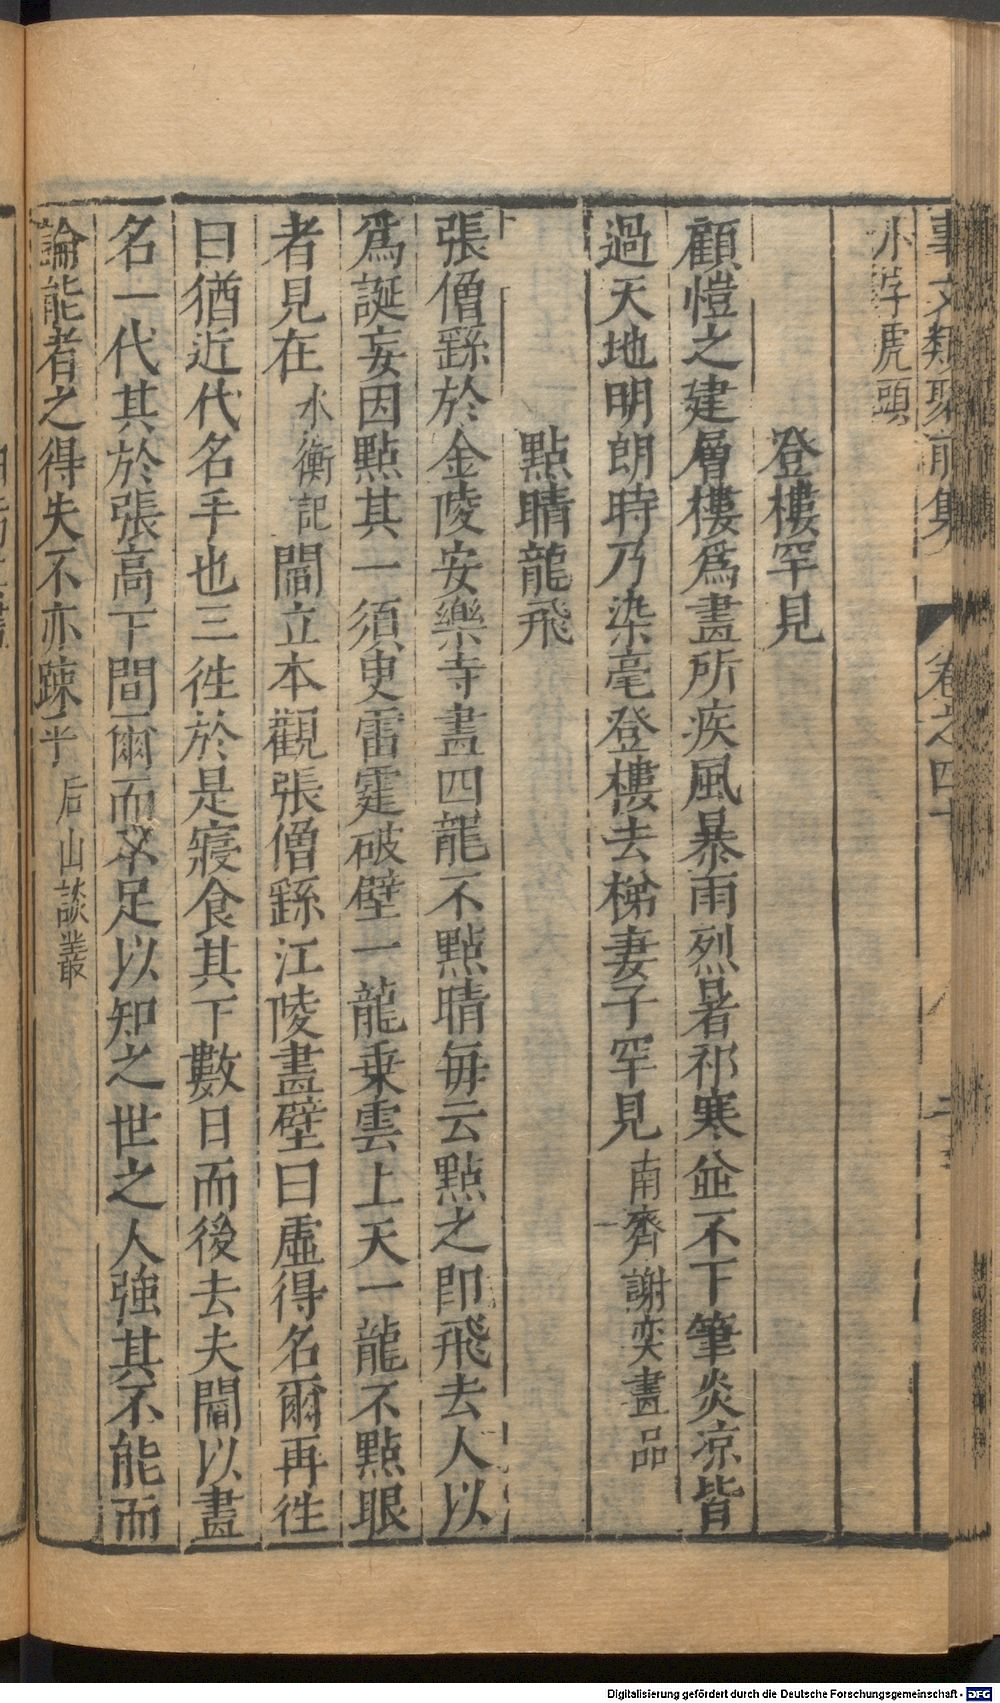 事文類聚前集 卷之四十
小字虎頭
登樓罕見
顧愷之建層樓爲畫所疾風暴雨烈暑祁寒並不下筆炎凉皆
過天地明朗時乃染毫登樓去梯妻子罕見南齊謝奕畫品
點睛龍飛
張僧繇於金陵安樂寺畫四龍不點睛每云點之即飛去人以
爲誕妄因點其一須臾雷霆破壁一龍乗雲上天一龍不點眼
者見在水衡記閻立本觀張僧繇江陵畫壁曰虛得名爾再徃
曰猶近代名手也三徃於是寢食其下數日而後去夫閻以畫
名一代其於張高下間爾而不足以知之世之人強其不能而
論能者之得失不亦踈乎后山談叢
Digitalisierung gefördert durch die Deutsche Forschungsgemeinschaft - DFG